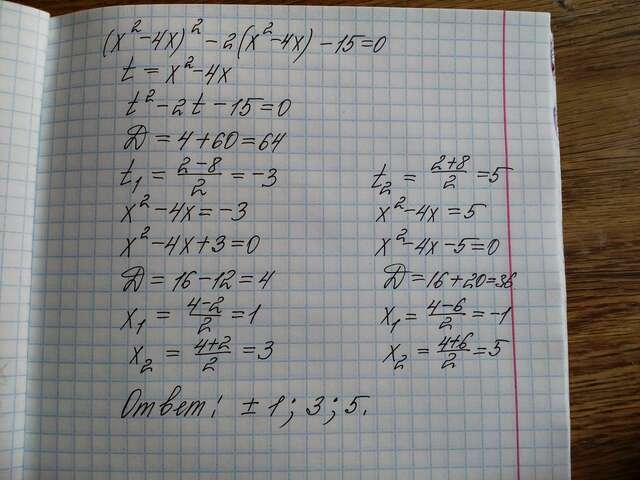 (x²-4x)²-2(x²-4x)-15=0
t=x²-4x
t²-2t-15=0
D=4+60=64
t₁=(2-8)/2=-3
x²-4x=-3
x²-4x+3=0
D=16-12=4
x₁=(4-2)/2=1
x₂=(4+2)/2=3
t₂=(2+8)/2=5
x²-4x=5
x²-4x-5=0
D=16+20=36
x₁=(4-6)/2=-1
x₂=(4+6)/2=5
Ответ: ±1; 3; 5.